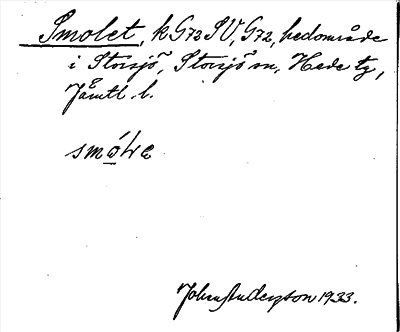 Smolet, k G73 SV, G72, hedområde
i Storsjö, Storsjö sn, Hede tg,
Jämtl l.
smólɛ
John Anderzson 1933.